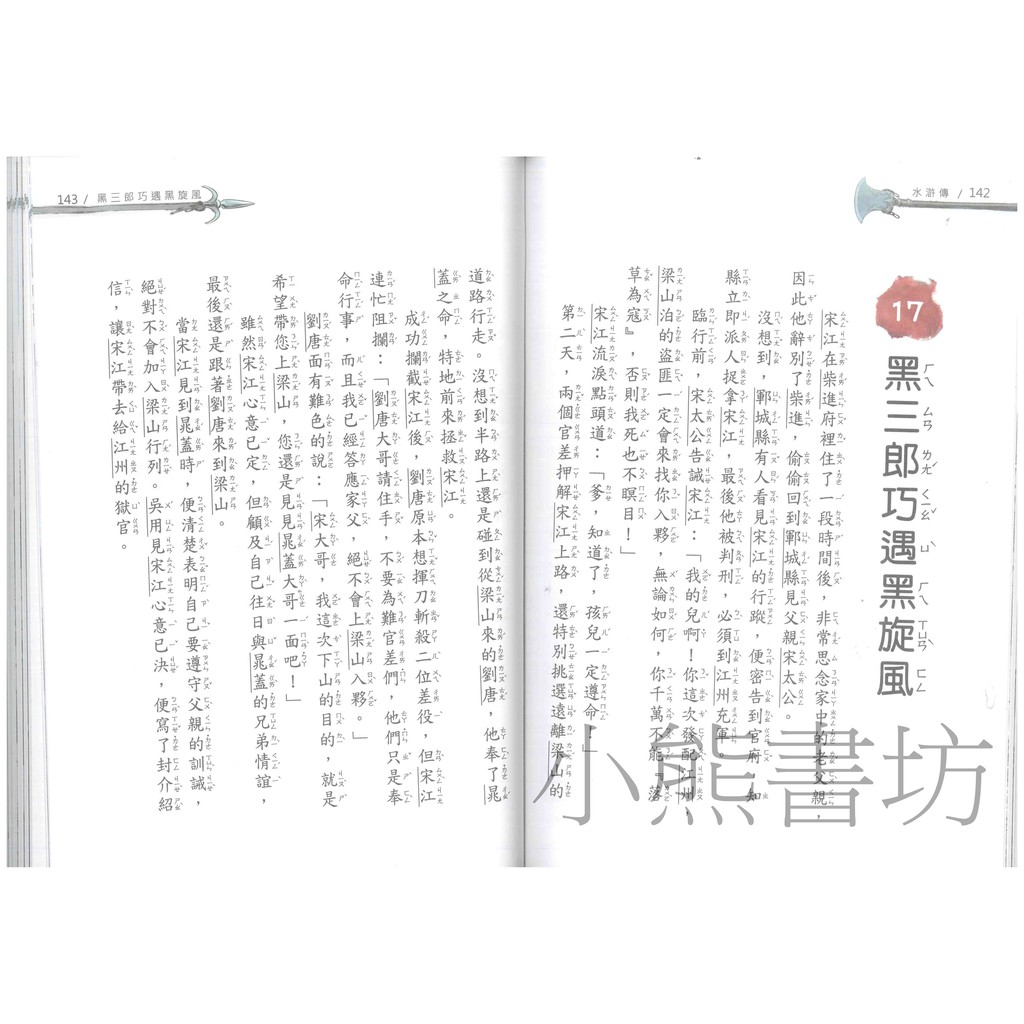 水滸傳 / 142
17
黑三郎巧遇黑旋風
宋江在柴進府裡住了一段時間後，非常思念家中的老父親，
因此他辭別了柴進，偷偷回到鄆城縣見父親宋太公。
沒想到，鄆城縣有人看見宋江的行蹤，便密告到官府，知
縣立即派人捉拿宋江，最後他被判刑，必須到江州充軍。
臨行前，宋太公告誡宋江：「我的兒啊！你這次發配江州，
梁山泊的盜匪一定會來找你入夥，無論如何，你千萬不能『落
草為寇』，否則我死也不瞑目！」
宋江流淚點頭道：「爹，知道了，孩兒一定遵命！」
第二天，兩個官差押解宋江上路，還特別挑選遠離梁山的
143 / 黑三郎巧遇黑旋風
道路行走。沒想到半路上還是碰到從梁山來的劉唐，他奉了晁
蓋之命，特地前來拯救宋江。
成功攔截宋江後，劉唐原本想揮刀斬殺二位差役，但宋江
連忙阻攔：「劉唐大哥請住手，不要為難官差們，他們只是奉
命行事，而且我已經答應家父，絕不會上梁山入夥。」
劉唐面有難色的說：「宋大哥，我這次下山的目的，就是
希望帶您上梁山，您還是見見晁蓋大哥一面吧！」
雖然宋江心意已定，但顧及自己往日與晁蓋的兄弟情誼，
最後還是跟著劉唐來到梁山。
當宋江見到晁蓋時，便清楚表明自己要遵守父親的訓誡，
絕對不會加入梁山行列。吳用見宋江心意已決，便寫了封介紹
信，讓宋江帶去給江州的獄官。
小熊書坊